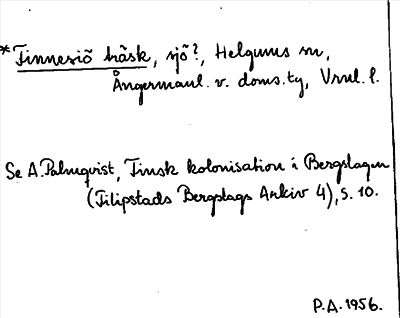 *Finnesiö träsk, sjö?, Helgums sn,
Ångermanl. v. doms.ty, Vrnl. l.
Se A.Palmqvist, Finsk kolonisation i Bergslagen
(Filipstads Bergslags Arkiv 4), s. 10.
P.A. 1956.